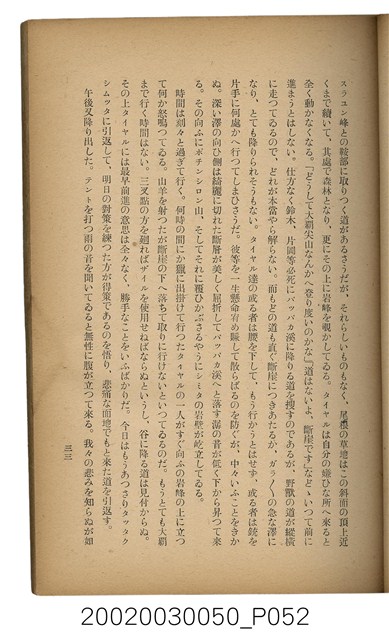 スラユン峰との鞍部に取りつく道があるさうだが、それらしいものもなく、尾根の草地はこの斜面の頂上近
くまで續いて、其處で森林となり、更にその上に岩峰を覗かしてゐる。タイヤルは自分の嫌ひな所へ來ると
全く動かなくなる。「どうして大霸尖山なんかへ登り度いのかな」「道はないよ、斷崖です」などゝいつて前に
進まうとはしない。仕方なく鈴木、片岡等必死にバツバカ溪に降りる道を搜すのであるが、野獸の道が縱橫
に走つてゐるので、どれが本當やら解らない。而もどの道も直ぐ斷崖につきあたるか、ガラ〱の急な澤に
なり、とても降りられそうもない。タイヤル達の或る者は腰を下して、もう行かうとはせず、或る者は銃を
片手に何處かへ行つてしまひさうだ。彼等を一生懸命宥め賺して散らばるのを防ぐが、中々いふことをきか
ぬ。深い澤の向ひ側は綺麗に切れた斷層が美しく屈折してバツバカ溪へと落す瀑の音が低く下から昇つて來
る。その向ふにボチンシロン山、そしてそれに覆ひかぶさるやうにシミタの岩壁が屹立してゐる。
時間は刻々と過ぎて行く。何時の間にか獵に出掛けて行つたタイヤルの一人がすぐ向ふの岩峰の上に立つ
て何か怒鳴つてゐる。山羊を射つたが斷崖の下へ落ちて取りに行けないといつてゐるのだ。もうとても大霸
まで行く時間はない。三叉點の方を廻ればザイルを使用せねばならぬといふし、谷に降る道は見付からぬ。
その上タイヤルには最早前進の意思は全々なく、勝手なことをいふばかりだ。今日はもうあつさりタツタク
シムツタに引返して、明日の對策を練つた方が得策であるのを悟り、悲痛な面地でもと來た道を引返す。
午後又降り出した。テントを打つ雨の音を聞いてゐると無性に腹が立つて來る。我々の悲みを知らぬが如
三三
20020030050_P052